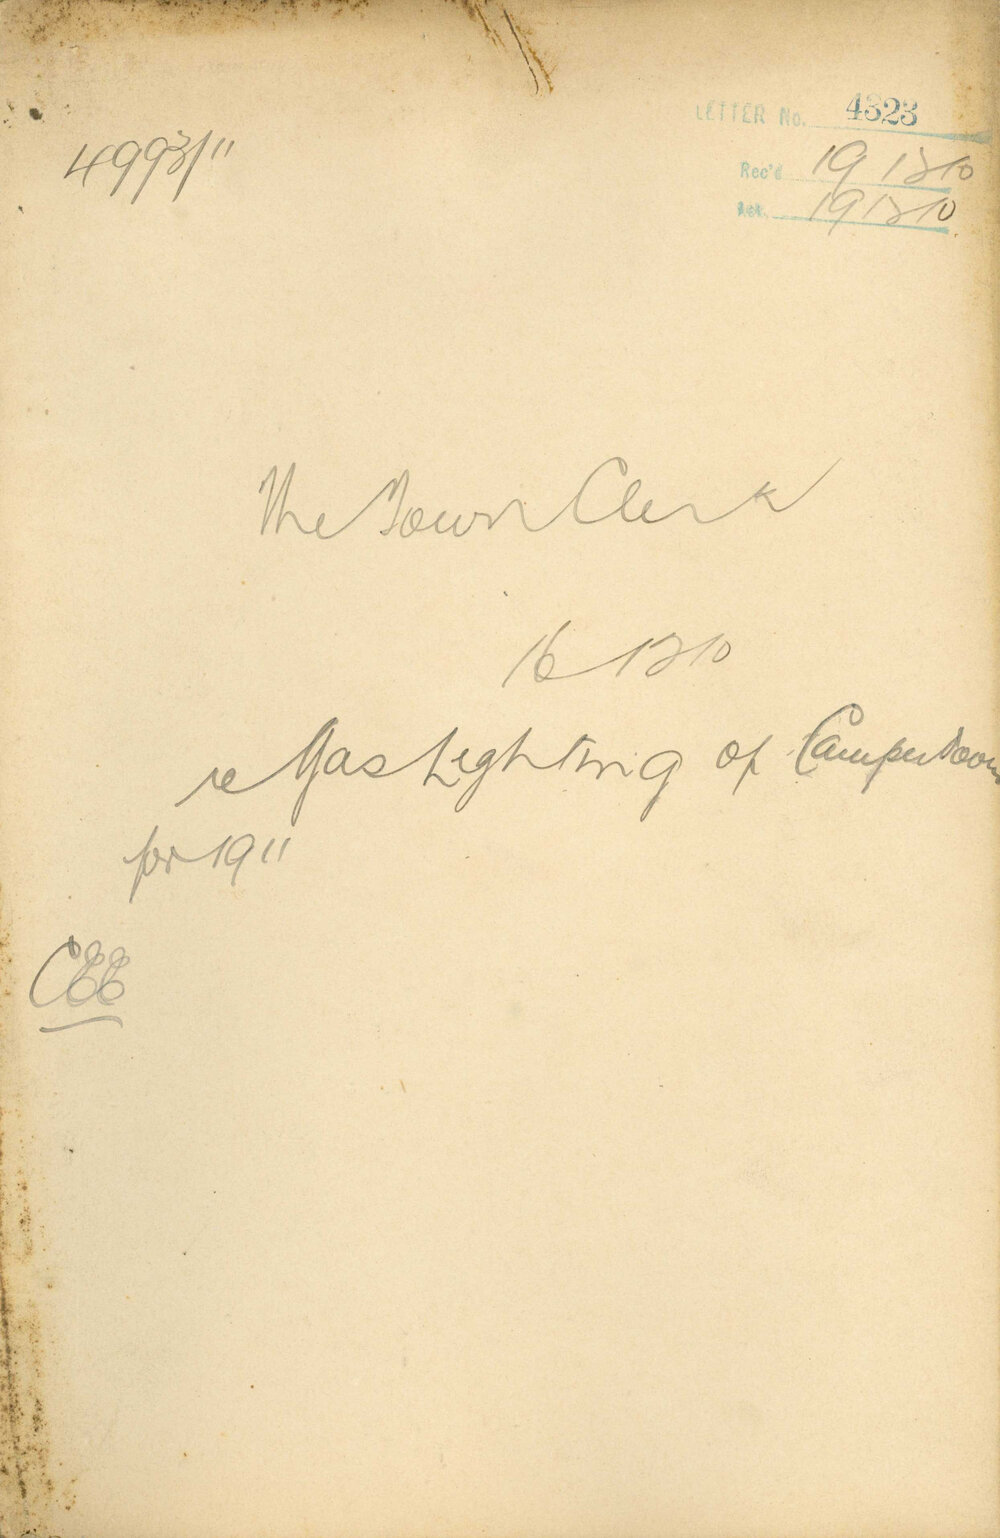 4993/11
LETTER No. 4323
Rec'd 19 12 10
Ack. 19 12 10
The Town Clerk
16 12 10
re Gas Lighting of Camperdown
for 1911